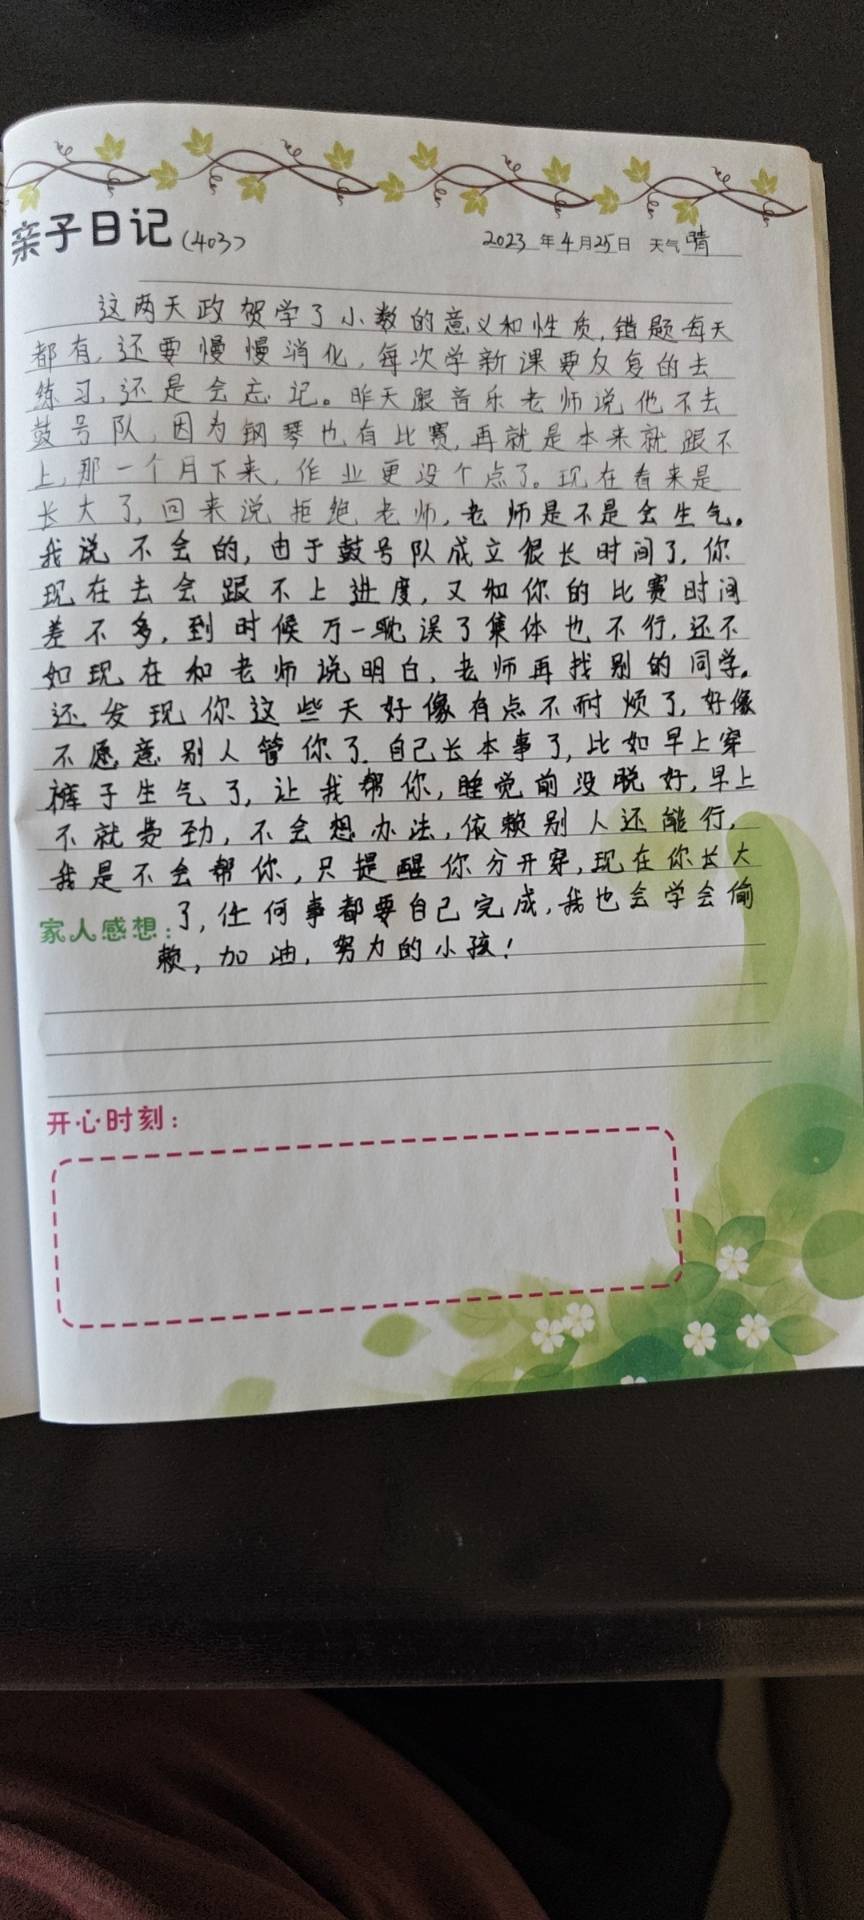 亲子日记(403) 2023年4月25日 天气晴
这两天政贺学了小数的意义和性质,错题每天
都有,还要慢慢消化,每次学新课要反复的去
练习,还是会忘记。昨天跟音乐老师说他不去
鼓号队,因为钢琴也有比赛,再就是本来就跟不
上,那一个月下来,作业更没个点了。现在看来是
长大了,回来说拒绝老师,老师是不是会生气。
我说不会的,由于鼓号队成立很长时间了,你
现在去会跟不上进度,又和你的比赛时间
差不多,到时候万一耽误了集体也不行,还不
如现在和老师说明白,老师再找别的同学。
还发现你这些天好像有点不耐烦了,好像
不愿意别人管你了.自己长本事了,比如早上穿
裤子生气了,让我帮你,睡觉前没脱好,早上
不就费劲,不会想办法,依赖别人还能行,
我是不会帮你,只提醒你分开穿,现在你长大
家人感想:了,任何事都要自己完成,我也会学会偷
赖,加油,努力的小孩!
开心时刻: